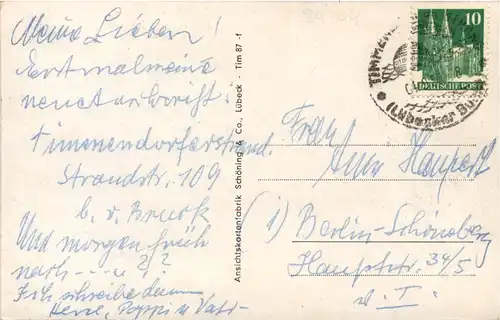 Meine Lieben!
Erstmal meine
neue Anschrift:
Timmendorferstrand.
Strandstr. 109
b. v. Bruck
Und morgen früh
nach ..... ?/?
Ich schreibe dann
Poppi u Vati-
Ansichtskartenfabrik Schöning & Co., Lübeck · Tim 87 -f
10
DEUTSCHE POST
TIMMEN
(Lübecker Bu
Frau
Anna Haupert
1) Berlin-Schöneberg
Hauptstr. 34/5
v. I